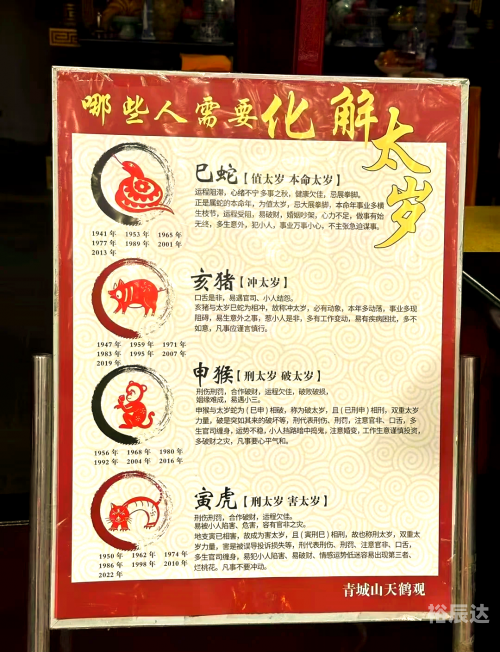 哪些人需要化解太岁
巳蛇【值太岁 本命太岁】
运程阻滞，心绪不宁多事之秋，健康欠佳，忌展拳脚。
正是属蛇的本命年，为值太岁，忌大展拳脚，本命年事业多横
生枝节，运程受阻，易破财，婚姻吵架，心力不足，做事有始
无终，多生意外。犯小人，事业万事小心，不主张急迫谋事。
1941 年 1953 年 1965 年
1977 年 1989 年 2001 年
2013 年
亥猪【冲太岁】
口舌是非，易遇官司、小人结怨。
亥猪与太岁巳蛇为相冲，故称冲太岁，必有动象，本年多动荡，事业多现
阻碍，易生意外之事，惹小人是非，多有工作变动，易有疾病困扰，多不
如意，凡事应谨言慎行。
1947 年 1959 年 1971 年
1983 年 1995 年 2007 年
2019 年
申猴【刑太岁 破太岁】
刑伤刑罚，合作破财，运程欠佳，破败破损，
姻缘难成，易遇小三。
申猴与太岁蛇为（巳申）相破，称为破太岁，且（巳刑申）相刑，双重太岁
力量。破是突如其来的破坏等，刑代表刑伤、刑罚，注意官非、口舌，多
生官司缠身，运势不稳，小人挡路暗中捣鬼，注意婚变，工作生意谨慎投资，
多破财之灾，凡事要心平气和。
1956 年 1968 年 1980 年
1992 年 2004 年 2016 年
寅虎【刑太岁 害太岁】
刑伤刑罚，合作破财，运程欠佳。
易被小人陷害、危害，容有官非之灾。
地支寅巳相害，故成为害太岁，且（寅刑巳）相刑，故也称刑太岁，双重太
岁力量，害是被误导投诉损失等，刑代表刑伤、刑罚、注意官非、口舌，
多生官司缠身，易犯小人陷害、易破财、情感运势低迷容易出现第三者、
烂桃花。凡事不要冲动。
1950 年 1962 年 1974 年
1986 年 1998 年 2010 年
2022 年
青城山天鹤观
裕辰达